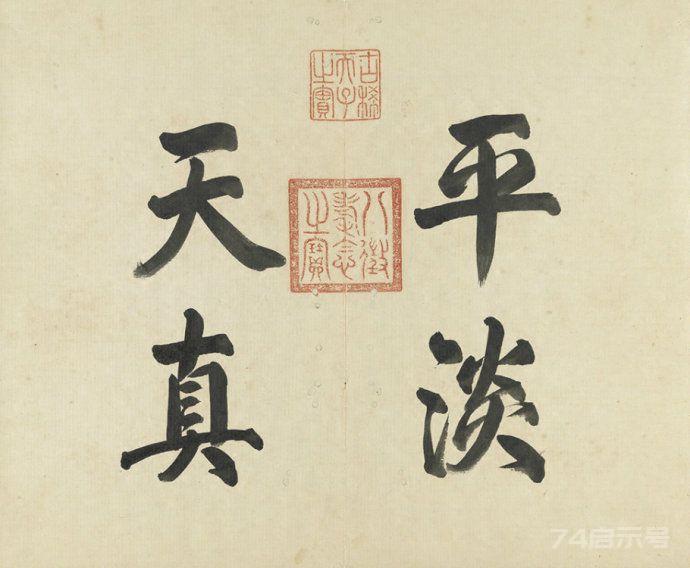 平淡
天真
古稀
天子
之寶
八徵
耄念
之寶
74启示号